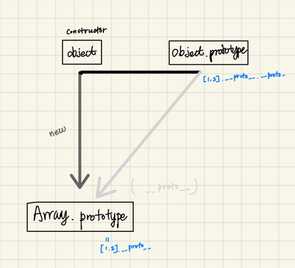 constructor
object
Object.prototype
[1,2].__proto__.__proto__
new
(__proto__)
Array.prototype
"
[1,2].__proto__